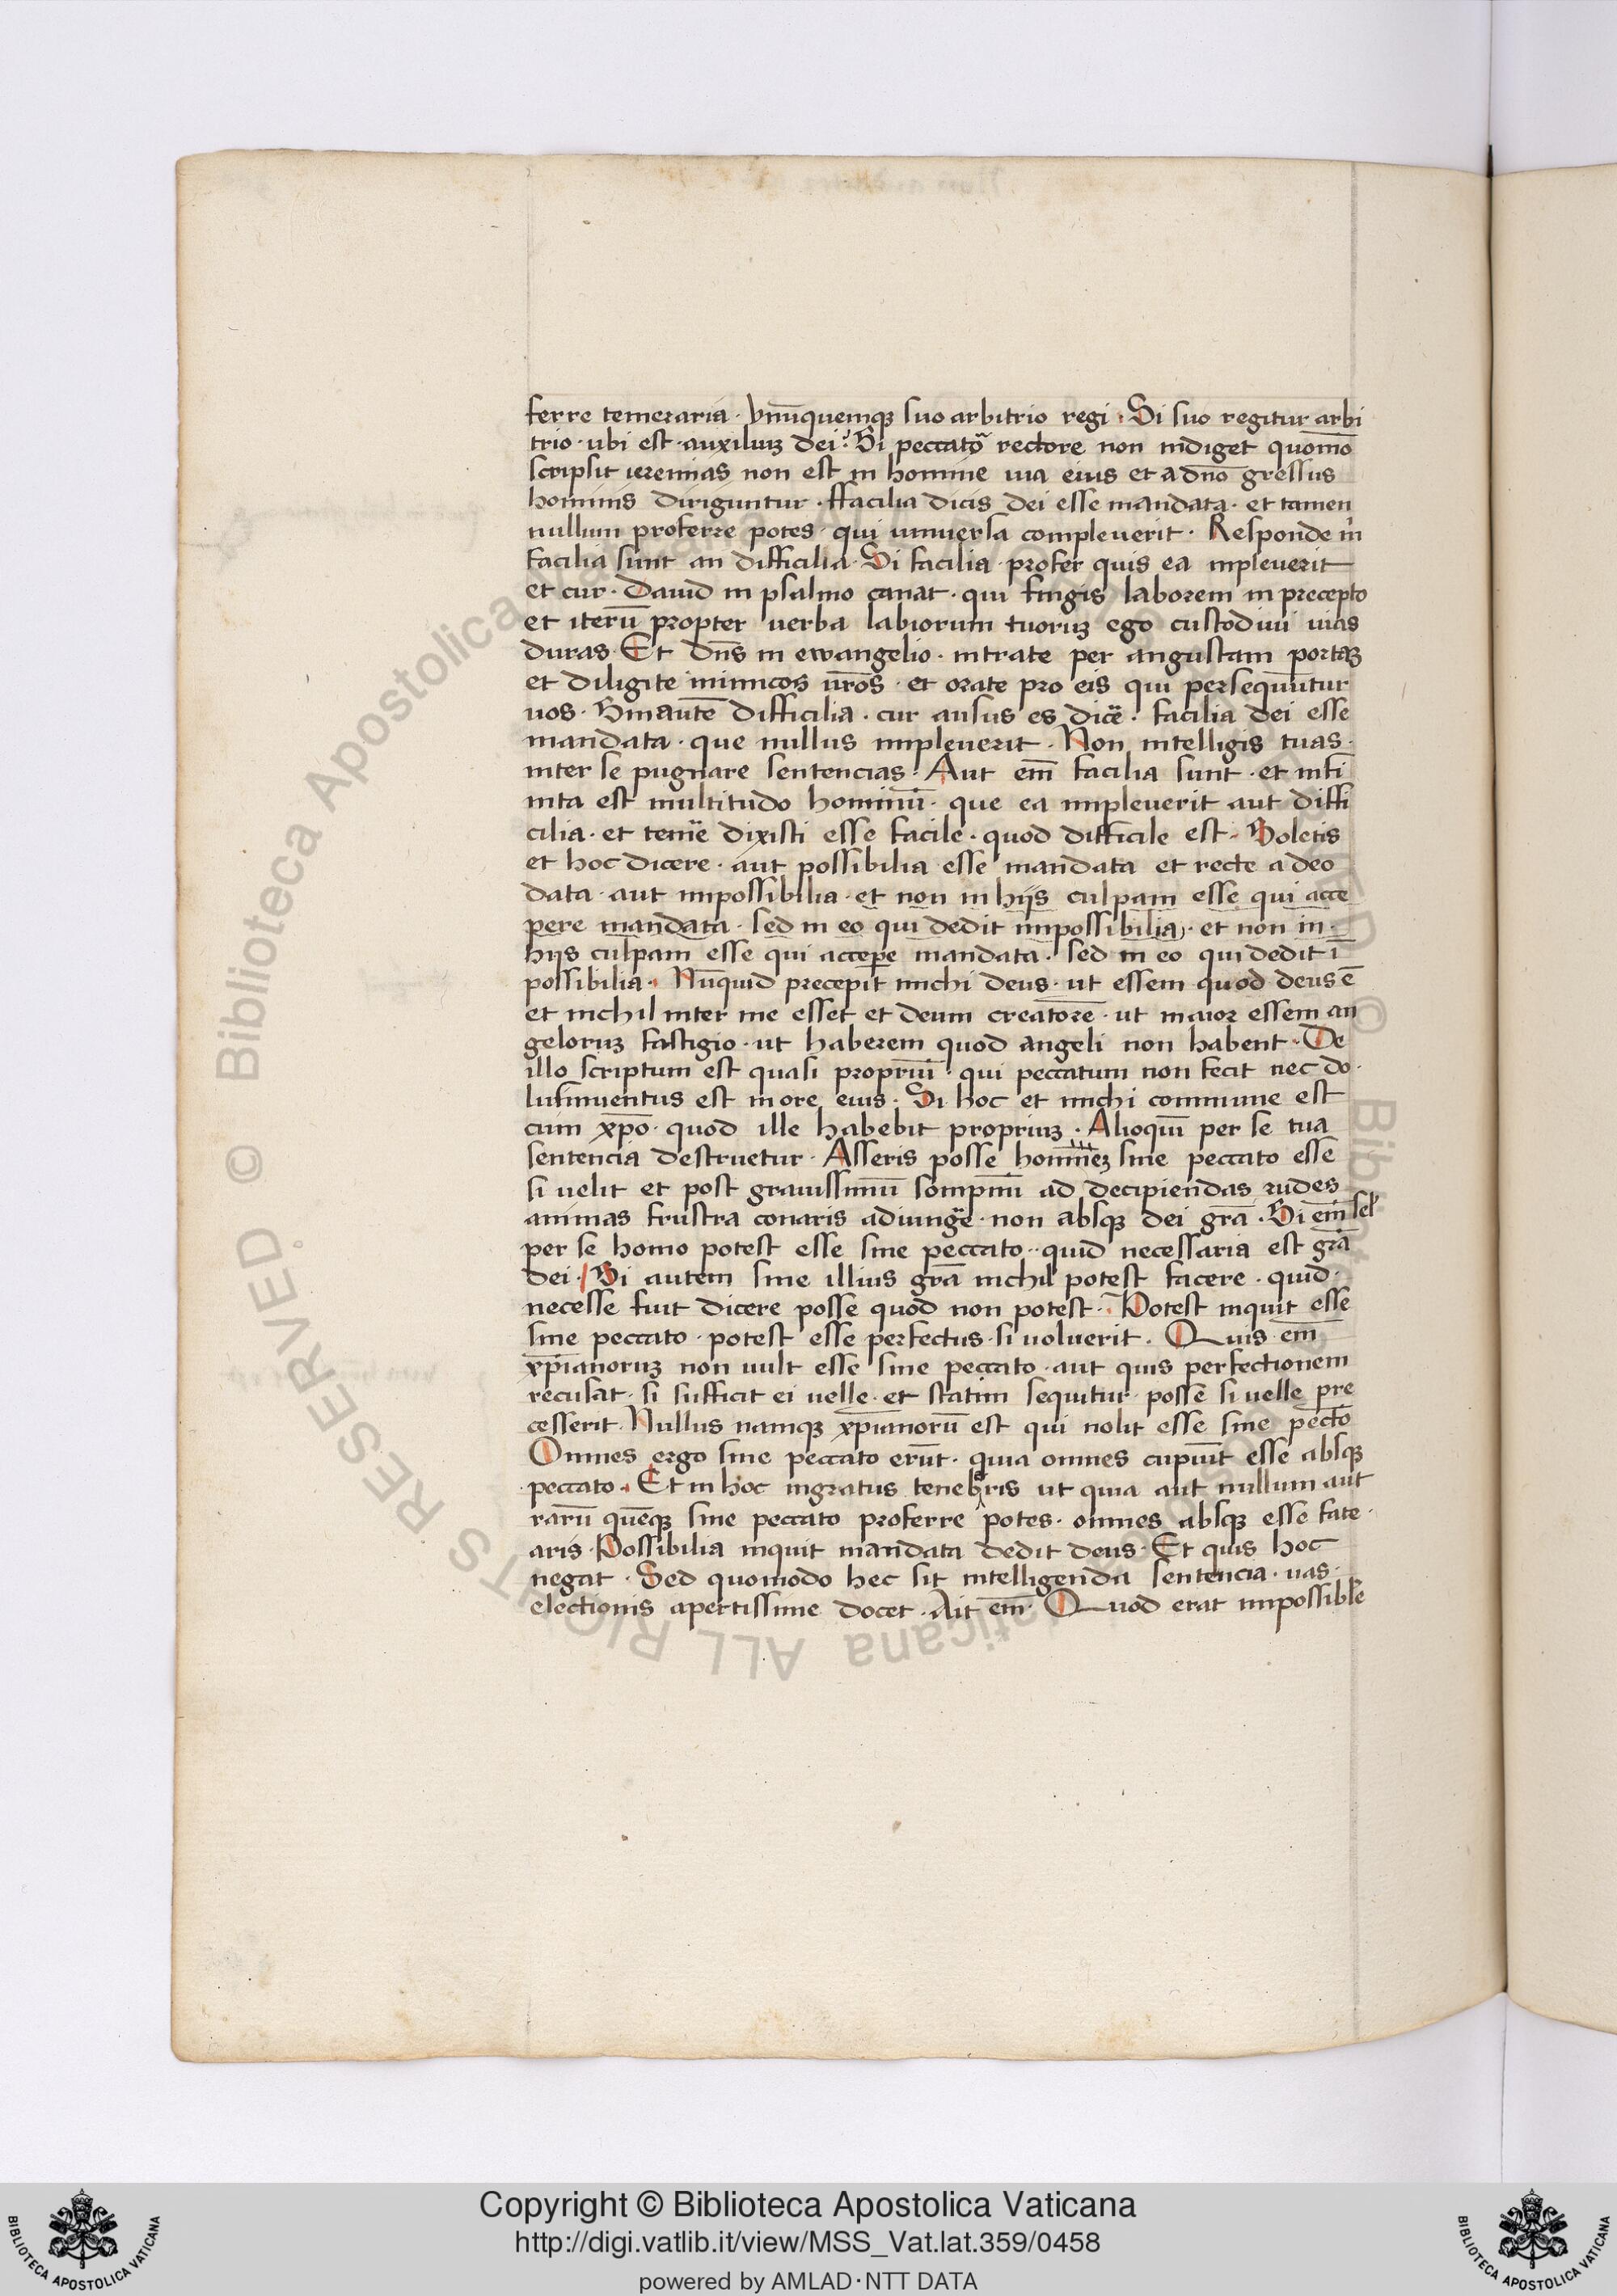 ferre temeraria · vnūquemqꝫ suo arbitrio regi · Si suo regitur arbi
trio · ubi est · auxiliuꝫ dei ? Si peccatoꝛ̃ rectore non indiget quomō
scripsit ieremias non est in homine uia eius et a dño gressus
hominis diriguntur · ffacilia dicis dei esse mandata · et tamen
nullum proferre potes · qui vniuersa compleuerit · Responde m̍
facilia sunt an difficilia · Si facilia · profer quis ea inpleuerit
et cur · Dauid in psalmo canat · qui fingis laborem in precepto
et iterū propter uerba labiorum tuoruꝫ ego custodiui uias
duras · Et dñs in ewangelio · intrate per angustam portaꝫ
et diligite inimicos ur̄os · et orate pro eis qui persequūtur
uos · Sin autē difficilia · cur ausus es dic̃e · facilia dei esse
mandata · que nullus impleuerit · Non intelligis tuas ·
inter se pugnare sentencias · Aut em̄ facilia sunt · et infi
nita est multitudo hominū · que ea impleuerit aut diffi
cilia · et tem̃e dixisti esse facile · quod difficile est · Soletis
et hoc dicere · aut possibilia esse mandata et recte a deo
data · aut impossibilia · et non in hijs culpam esse qui acce
pere mandata · sed in eo qui dedit impossibilia · et non in ·
hijs culpam esse qui accepere mandata · sed in eo qui dedit ī
possibilia · Nūquid precepit michi deus · ut essem quod deus ē
et nichil inter me esset et deum creatorē · ut maior essem an
geloruꝫ fastigio · ut haberem quod angeli non habent · De
illo scriptum est quasi propriū · qui peccatum non fecit nec do ·
lus inuentus est in ore eius · Si hoc et michi commune est
cum xp̄o · quod ille habebit propriuꝫ · Alioquī per se tua
sentencia destruetur · Asseris posse homineꝫ sine peccato esse
si uelit et post grauissimū sompnū ad decipiendas rudes
animas frustra conaris adiung̃e · non absqꝫ dei gr̄a · Si em̄ sel̉
per se homo potest esse sine peccato · quid necessaria est gr̄a
dei · Si autem sine illius gr̄a nichil potest facere · quid ·
necesse fuit dicere posse quod non potest · Potest inquit esse
sine peccato · potest esse perfectus · si uoluerit · Quis em̄
xp̄ianoruꝫ non uult esse sine peccato · aut quis perfectionem
recusat · si sufficit ei uelle · et statim sequitur posse si uelle pre
cesserit · Nullus namqꝫ xp̄ianorū est qui nolit esse sine pec̄to
Omnes ergo sine peccato erūt · quia omnes cupiūt esse absqꝫ
peccato · Et in hoc ingratus tenebris ut quia aut nullum aut
rarū quēqꝫ sine peccato proferre potes · omnes absqꝫ esse fate ·
aris · Possibilia inquit mandata dedit deus · Et quis hoc
negat · Sed quomodo hec sit intelligenda sentencia · uas ·
electionis apertissime docet · Ait em̄ · Quod erat impossibile
© Biblioteca Apostolica Vaticana ALL RIGHTS RESERVED
Copyright © Biblioteca Apostolica Vaticana
http://digi.vatlib.it/view/MSS_Vat.lat.359/0458
powered by AMLAD·NTT DATA
BIBLIOTECA APOSTOLICA VATICANA
BIBLIOTECA APOSTOLICA VATICANA